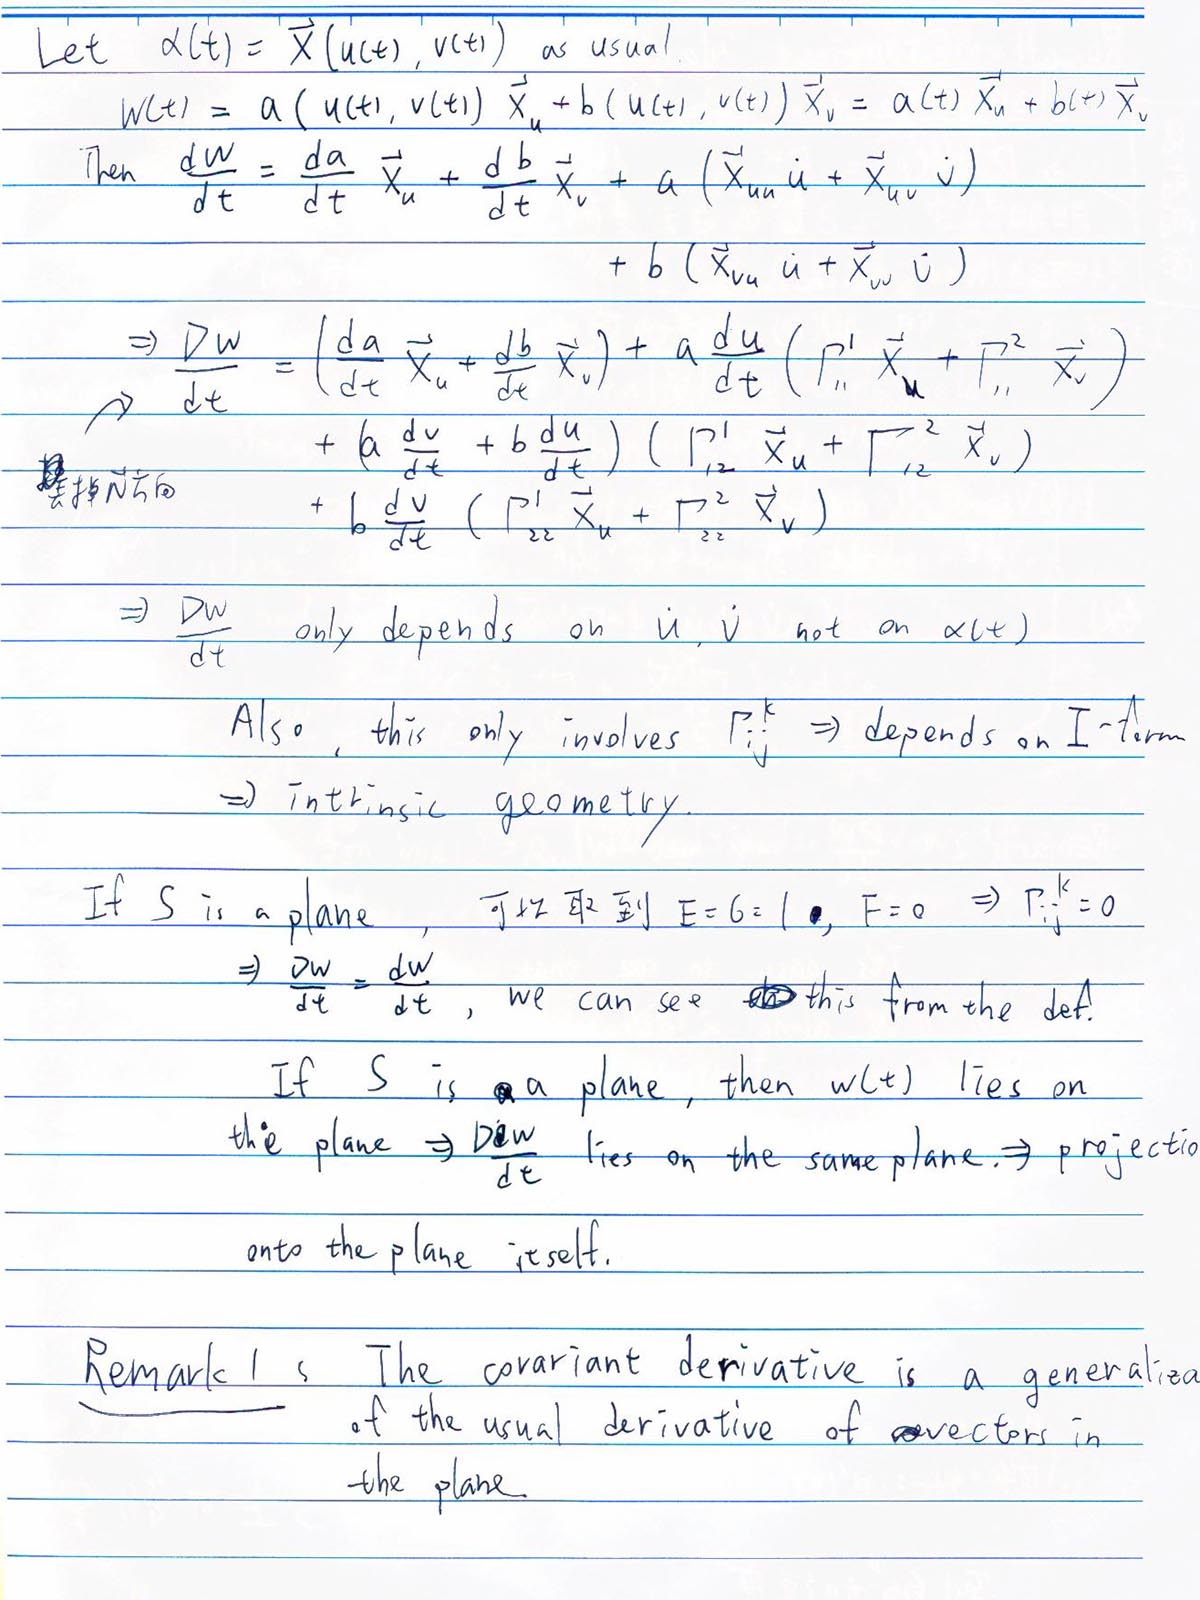 Let α(t) = X⃗(u(t), v(t)) as usual.
W(t) = a(u(t), v(t)) X⃗_u + b(u(t), v(t)) X⃗_v = a(t) X⃗_u + b(t) X⃗_v
Then dW/dt = da/dt X⃗_u + db/dt X⃗_v + a (X⃗_uu u̇ + X⃗_uv v̇)
+ b (X⃗_vu u̇ + X⃗_vv v̇)
⇒ DW/dt = (da/dt X⃗_u + db/dt X⃗_v) + a du/dt (Γ_11^1 X⃗_u + Γ_11^2 X⃗_v)
+ (a dv/dt + b du/dt) (Γ_12^1 X⃗_u + Γ_12^2 X⃗_v)
去掉N⃗方向
+ b dv/dt (Γ_22^1 X⃗_u + Γ_22^2 X⃗_v)
⇒ DW/dt only depends on u̇, v̇ not on α(t)
Also, this only involves Γ_ij^k ⇒ depends on I-form
⇒ intrinsic geometry.
If S is a plane, 可以取到 E=G=1, F=0 ⇒ Γ_ij^k = 0
⇒ DW/dt = dW/dt, we can see this from the def.
If S is a plane, then w(t) lies on
the plane ⇒ DW/dt lies on the same plane. ⇒ projectio
onto the plane itself.
Remark 1: The covariant derivative is a generaliza
of the usual derivative of vectors in
the plane.